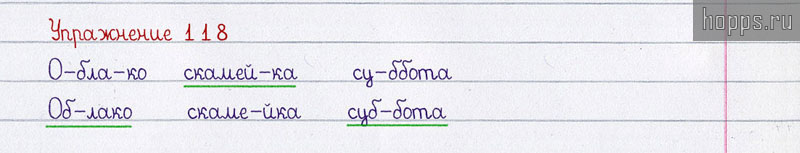 hopps.ru
Упражнение 118
О-бла-ко скамей-ка су-ббота
Об-лако скаме-йка суб-бота